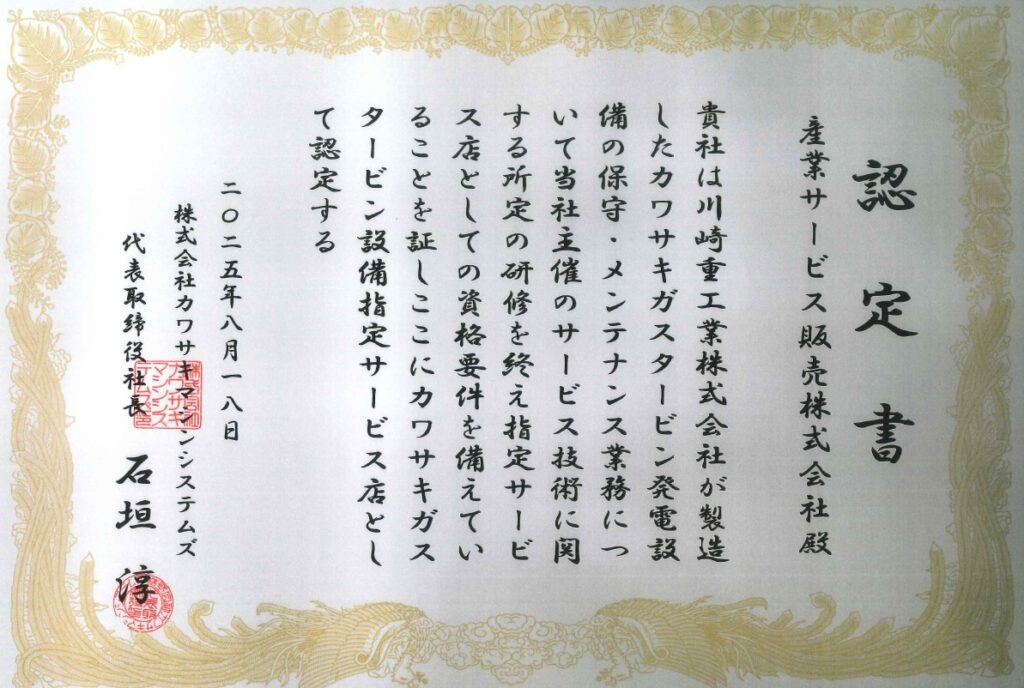 認定書
産業サービス販売株式会社殿
貴社は川崎重工業株式会社が製造
したカワサキガスタービン発電設
備の保守・メンテナンス業務につ
いて当社主催のサービス技術に関
する所定の研修を終え指定サービ
ス店としての資格要件を備えてい
ることを証しここにカワサキガス
タービン設備指定サービス店とし
て認定する
二〇二五年八月一八日
株式会社カワサキマシンシステムズ
代表取締役社長 石垣 淳